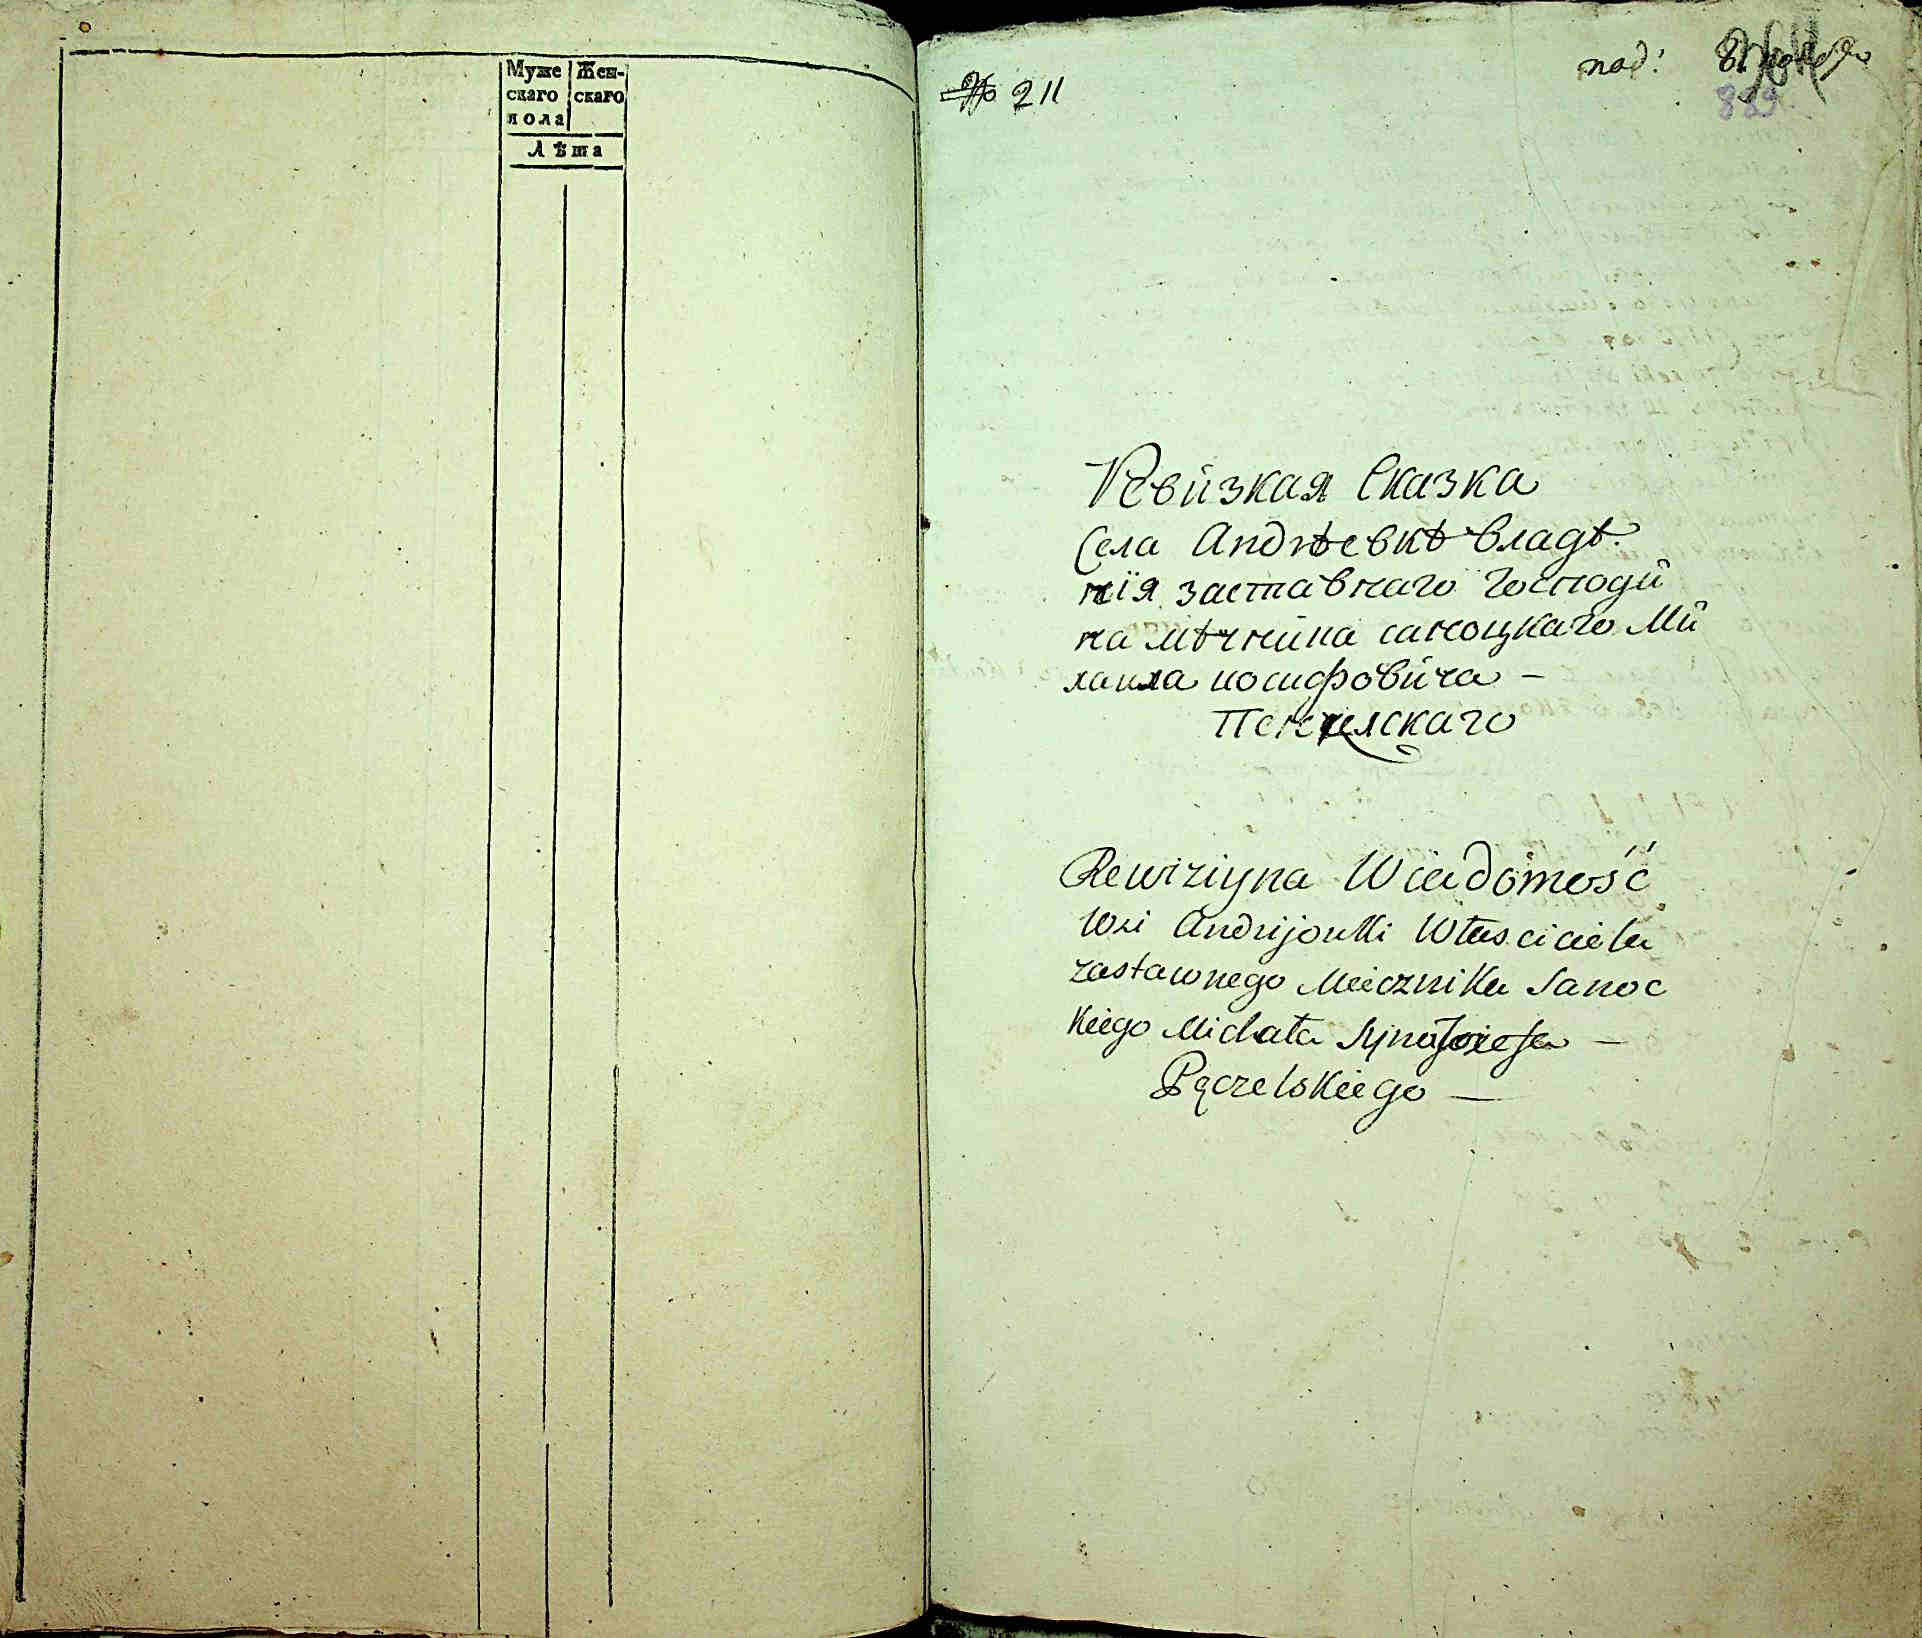 Муже Жен-
скаго скаго
пола
Лѣта
№ 211
под:
889
Ревизкая Сказка
Села Андрѣевкѣ владѣ
нія заставнаго Господи
на мѣчника саноцкаго Ми
хаила иосифовича —
Пенчелскаго
Rewiziyna Wiadomość
Wsi Andrijowki Własciciela
zastawnego Miecznika Sanoc
kiego Michała Syna Jozefa —
Pęczelskiego —